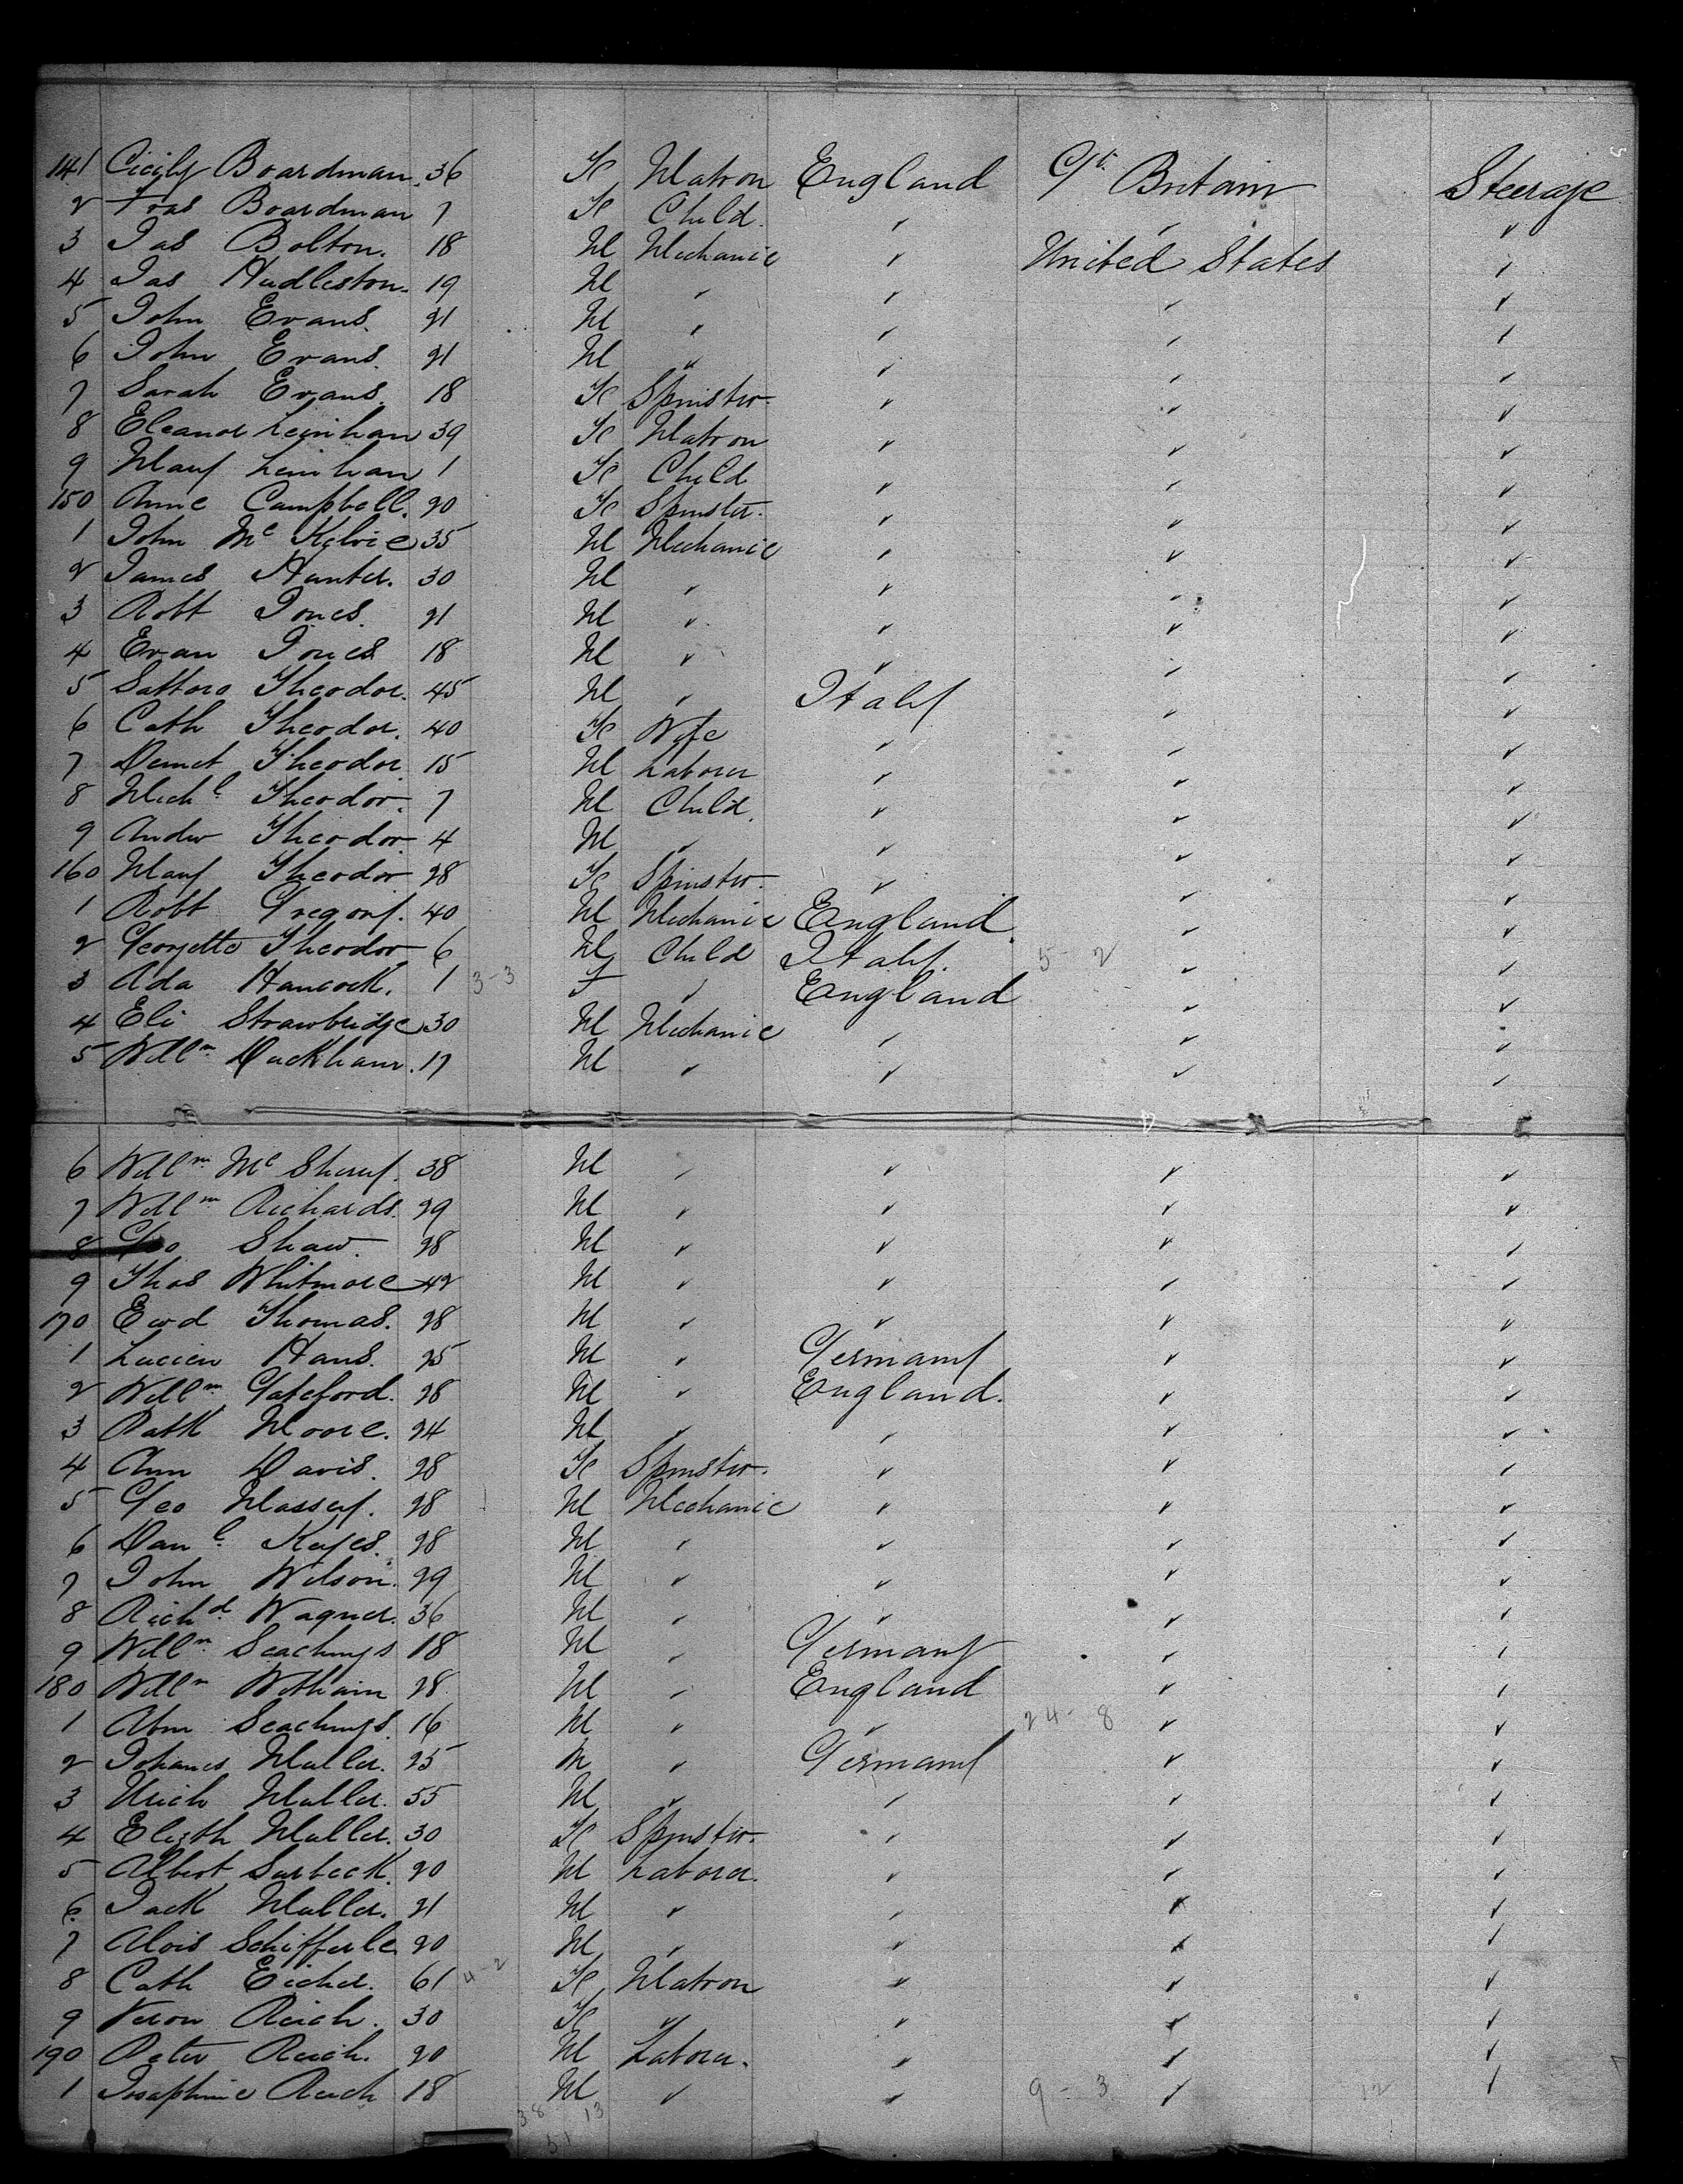 141 Cicily Boardman. 36 F Matron England Gt. Britain Steerage
2 Fras Boardman 7 F Child. ✓ ✓ ✓
3 Jas Bolton. 18 M Mechanic ✓ United States ✓
4 Jas Hudleston. 19 M ✓ ✓ ✓ ✓
5 John Evans. 21 M ✓ ✓ ✓ ✓
6 John Evans. 21 M " ✓ ✓ ✓
7 Sarah Evans. 18 F Spinster. ✓ ✓ ✓
8 Eleanor Leinhan 39 F Matron ✓ ✓ ✓
9 Mary Leinhan 1 F Child ✓ ✓ ✓
150 Anne Campbell. 20 F Spinster. ✓ ✓ ✓
1 John Mc Kelvie 35 M Mechanic ✓ ✓ ✓
2 James Hunter. 30 M ✓ ✓ ✓ ✓
3 Robt Jones. 21 M ✓ ✓ ✓ ✓
4 Evan Jones 18 M ✓ ✓ ✓ ✓
5 Sattoro Theodor. 45 M ✓ Italy ✓ ✓
6 Cath Theodor. 40 F Wife ✓ ✓ ✓
7 Demet Theodor 15 M Laborer ✓ ✓ ✓
8 Michl. Theodor. 7 M Child. ✓ ✓ ✓
9 Andw Theodor. 4 M ✓ ✓ ✓ ✓
160 Mary Theodor 28 F Spinster. ✓ ✓ ✓
1 Robt Gregory. 40 M Mechanic England. ✓ ✓
2 Georgetto Theodor 6 M Child Italy. 5-2 ✓ ✓
3 Ada Hancock. 1 3-3 F ✓ England ✓ ✓
4 Eli Strawbridge 30 M Mechanic ✓ ✓ ✓
5 Willm. Duckham. 17 M ✓ ✓ ✓ ✓
6 Willm. Mc Sherry. 38 M ✓ ✓ ✓ ✓
7 Willm Richards. 29 M ✓ ✓ ✓ ✓
8 Geo Shaw. 28 M ✓ ✓ ✓ ✓
9 Thos Whitmore 42 M ✓ ✓ ✓ ✓
170 Ewd Thomas. 28 M ✓ ✓ ✓ ✓
1 Lucien Hans. 25 M ✓ Germany ✓ ✓
2 Willm. Gateford. 28 M ✓ England. ✓ ✓
3 Patk Moore. 24 M ✓ ✓ ✓ ✓
4 Ann Davis. 28 F Spinster. ✓ ✓ ✓
5 Geo Massey. 28 M Mechanic ✓ ✓ ✓
6 Danl. Kayes. 28 M ✓ ✓ ✓ ✓
7 John Wilson. 29 M ✓ ✓ ✓ ✓
8 Richd. Wagner. 36 M ✓ ✓ ✓ ✓
9 Willm. Seachings 18 M ✓ Germany ✓ ✓
180 Willm Witham 28 M ✓ England ✓ ✓
1 Abm Seachings 16 M ✓ ✓ 24-8 ✓ ✓
2 Johanes Muller. 25 M ✓ Germany ✓ ✓
3 Ulrich Muller. 55 M ✓ ✓ ✓ ✓
4 Elizth Muller. 30 F Spinster. ✓ ✓ ✓
5 Albert Surbeck. 20 M Laborer. ✓ ✓ ✓
6 Jack Muller. 21 M ✓ ✓ ✓ ✓
7 Alois Schifferle. 20 M ✓ ✓ ✓ ✓
8 Cath Eicher. 61 4-2 F Matron ✓ ✓ ✓
9 Veron Reich. 30 F ✓ ✓ ✓ ✓
190 Peter Reich. 20 M Laborer. ✓ ✓ ✓
1 Josaphine Reich 18 M ✓ ✓ 9-3 ✓ 12 ✓
38 13
51